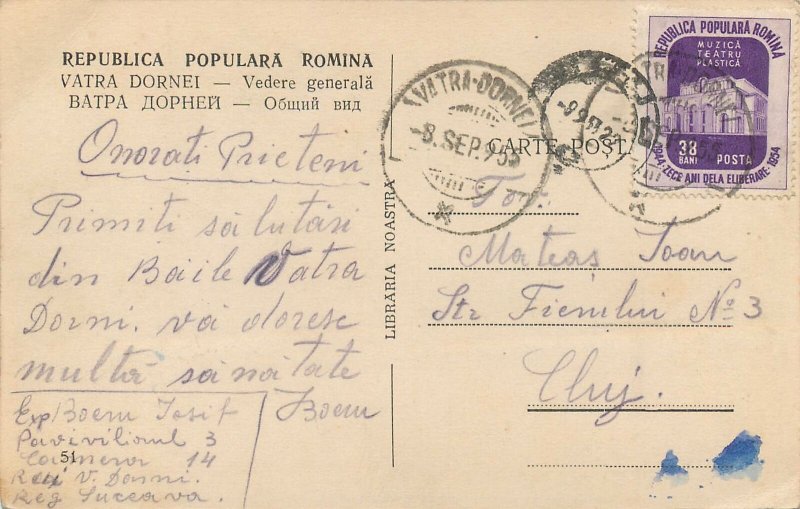 REPUBLICA POPULARĂ ROMÎNA
VATRA DORNEI — Vedere generală
ВАТРА ДОРНЕЙ — Общий вид
Onorati Prieteni
Primiti sălutări
din Băile Vatra
Dorni. vă doresc
multă sănătate
Boeru
Exp/Boeru Iosif
Pavivilionul 3
Camera 14
51
V. Dorni.
Reg Suceava.
LIBRĂRIA NOASTRĂ
CARTE POSTALĂ
VATRA-DORNEI
-8. SEP. 955
REPUBLICA POPULARĂ ROMÎNĂ
MUZICĂ
TEATRU
PLASTICĂ
38
BANI
POSTA
1944-ZECE ANI DELA ELIBERARE-1954
Tov.
Mateaș Ioan
Str Fienului No 3
Cluj.